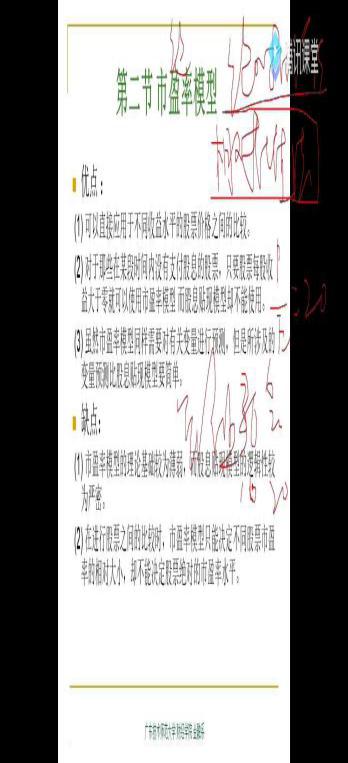 第二节 市盈率模型
腾讯课堂
优点：
(1) 可以直接应用于不同收益水平的股票价格之间的比较。
(2) 对于那些在某段时间内没有支付股息的股票，只要股票每股收
益大于零就可以使用市盈率模型而股息贴现模型却不能使用。
(3) 虽然市盈率模型同样需要对有关变量进行预测，但是所涉及的
变量预测比股息贴现模型要简单。
= 20
缺点：
(1) 市盈率模型的理论基础较为薄弱，而股息贴现模型的逻辑性较
为严密。
20
(2) 在进行股票之间的比较时，市盈率模型只能决定不同股票市盈
率的相对大小，却不能决定股票绝对的市盈率水平。
广东技术师范大学 财经学院 金融系